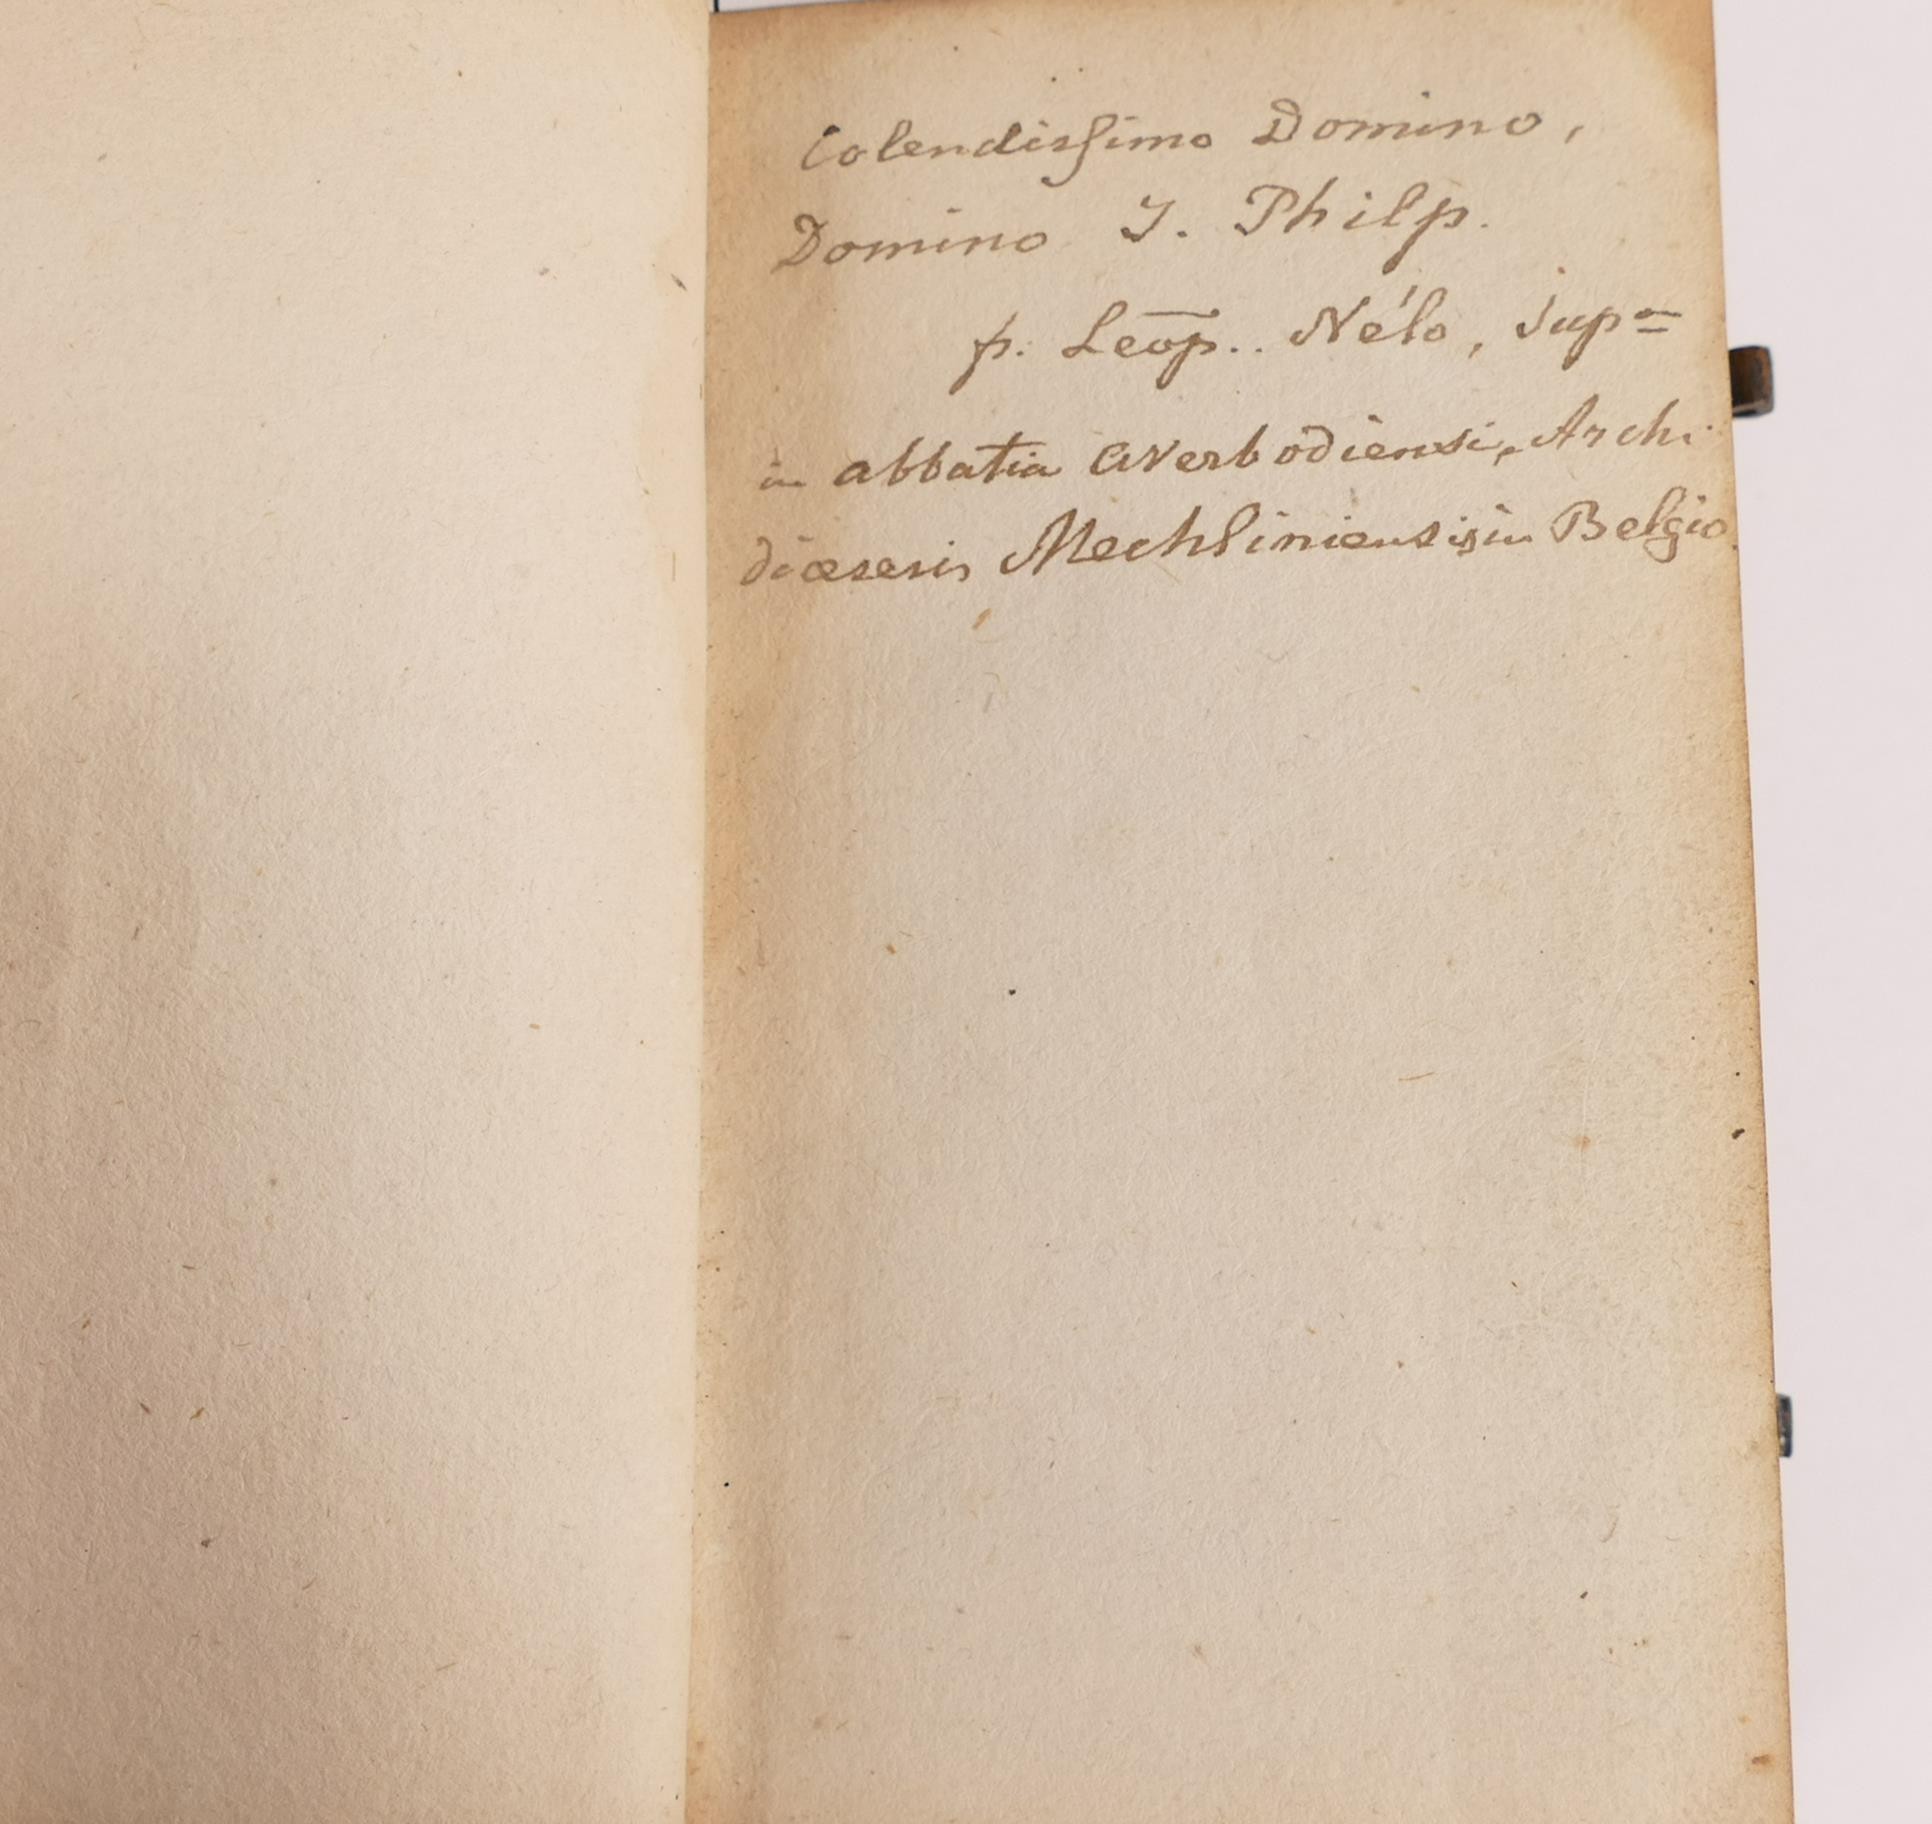 Colendissimo Domino,
Domino J. Philp.
p. Leop.. Nélo, Sup
in abbatia Averbodiensi, Archi
diœsesis Mechliniensis in Belgio.